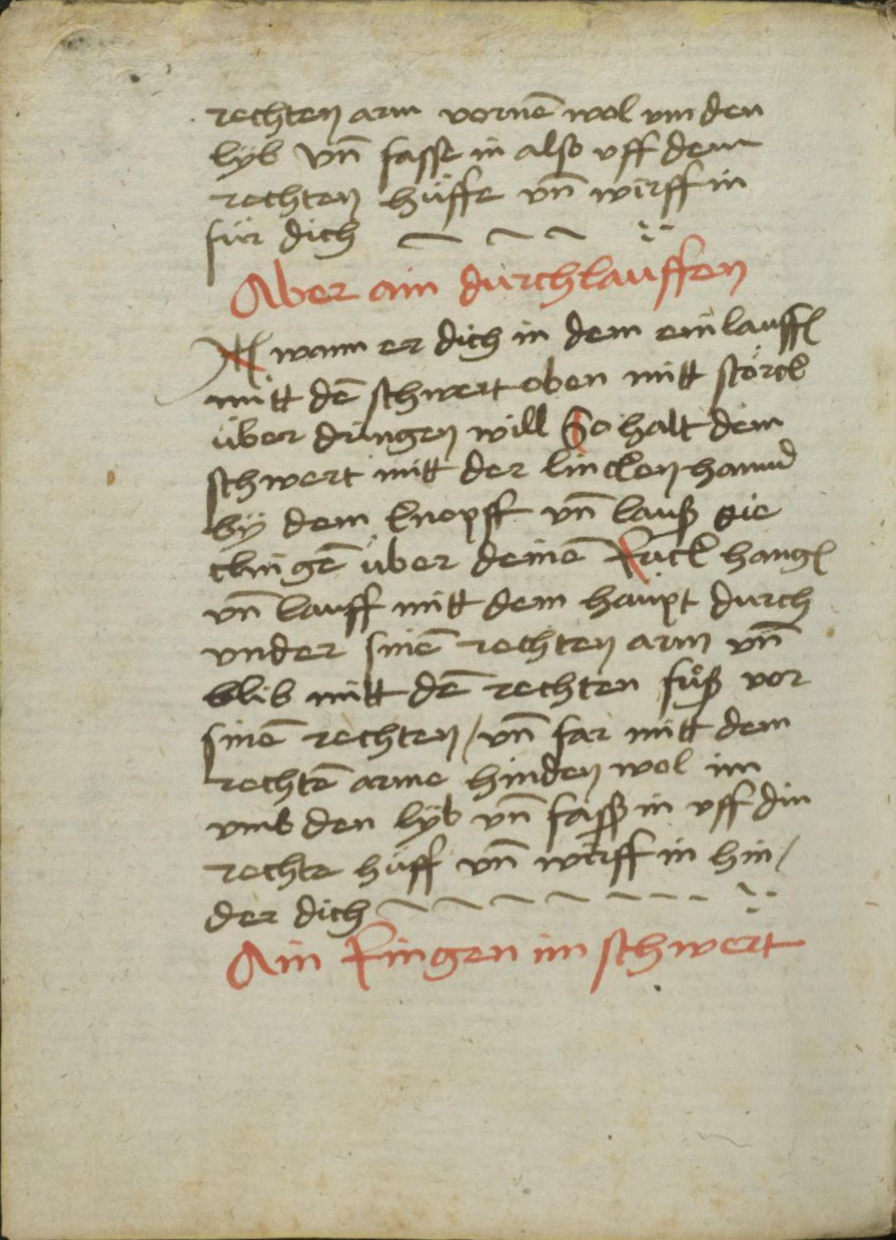 rechten arm vornē wol vm den
lÿb vn̄ fasse in also vff dein
rechten hüffe vn̄ wirff in
für dich
Aber ain durchlauffen
Itm̄ wann er dich in dem einlauffen
mitt dē schwert oben mitt störck
über dringen will So halt dein
schwert mitt der lincken hannd
bÿ dem knopff vn̄ lauß die
clingē über deinē Ruck hangen
vn̄ lauff mitt dem haupt durch
vnder sinē rechten arm vn̄
blib mitt dē rechten fůß vor
sinē rechten / vn̄ far mitt dem
rechtē arme hinden wol im
vmb den lÿb vn̄ fasß in vff din
rechte hüff vn̄ wirff in hin /
der dich
Ain Ringen im schwert